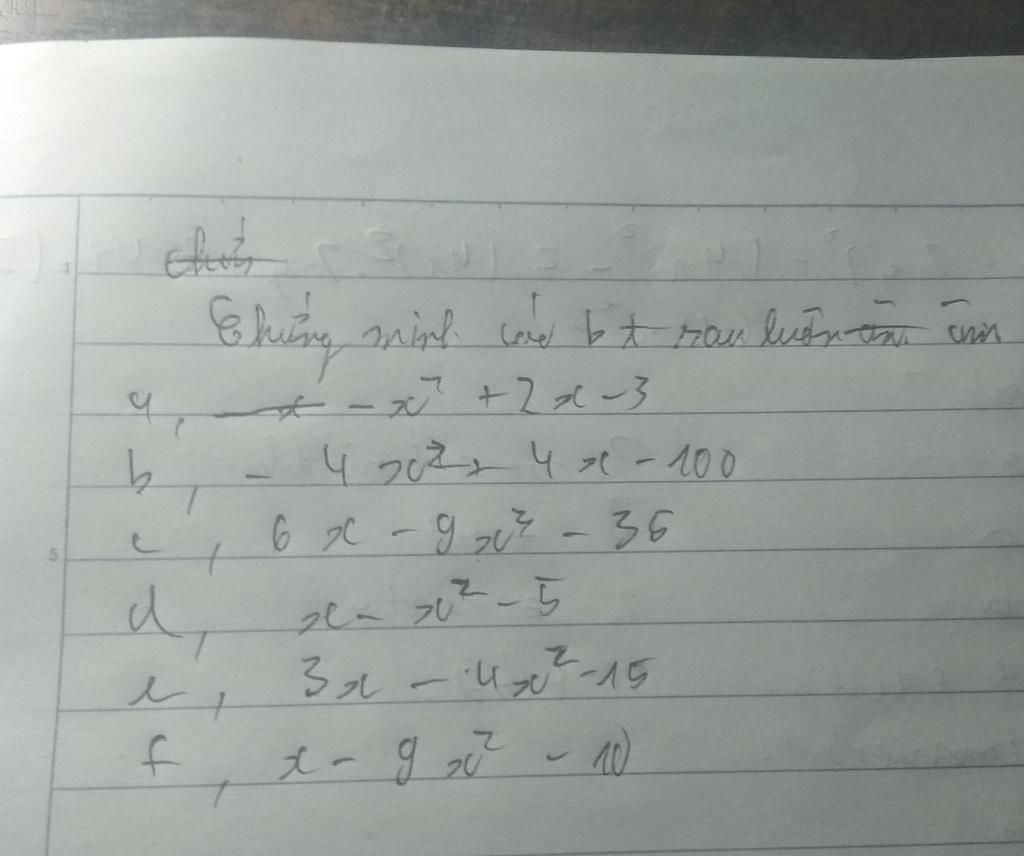 Chứng minh các bt sau luôn âm
a, -x² + 2x - 3
b, - 4x² + 4x - 100
c, 6x - 9x² - 36
d, x - x² - 5
e, 3x - 4x² - 15
f, x - 9x² - 10